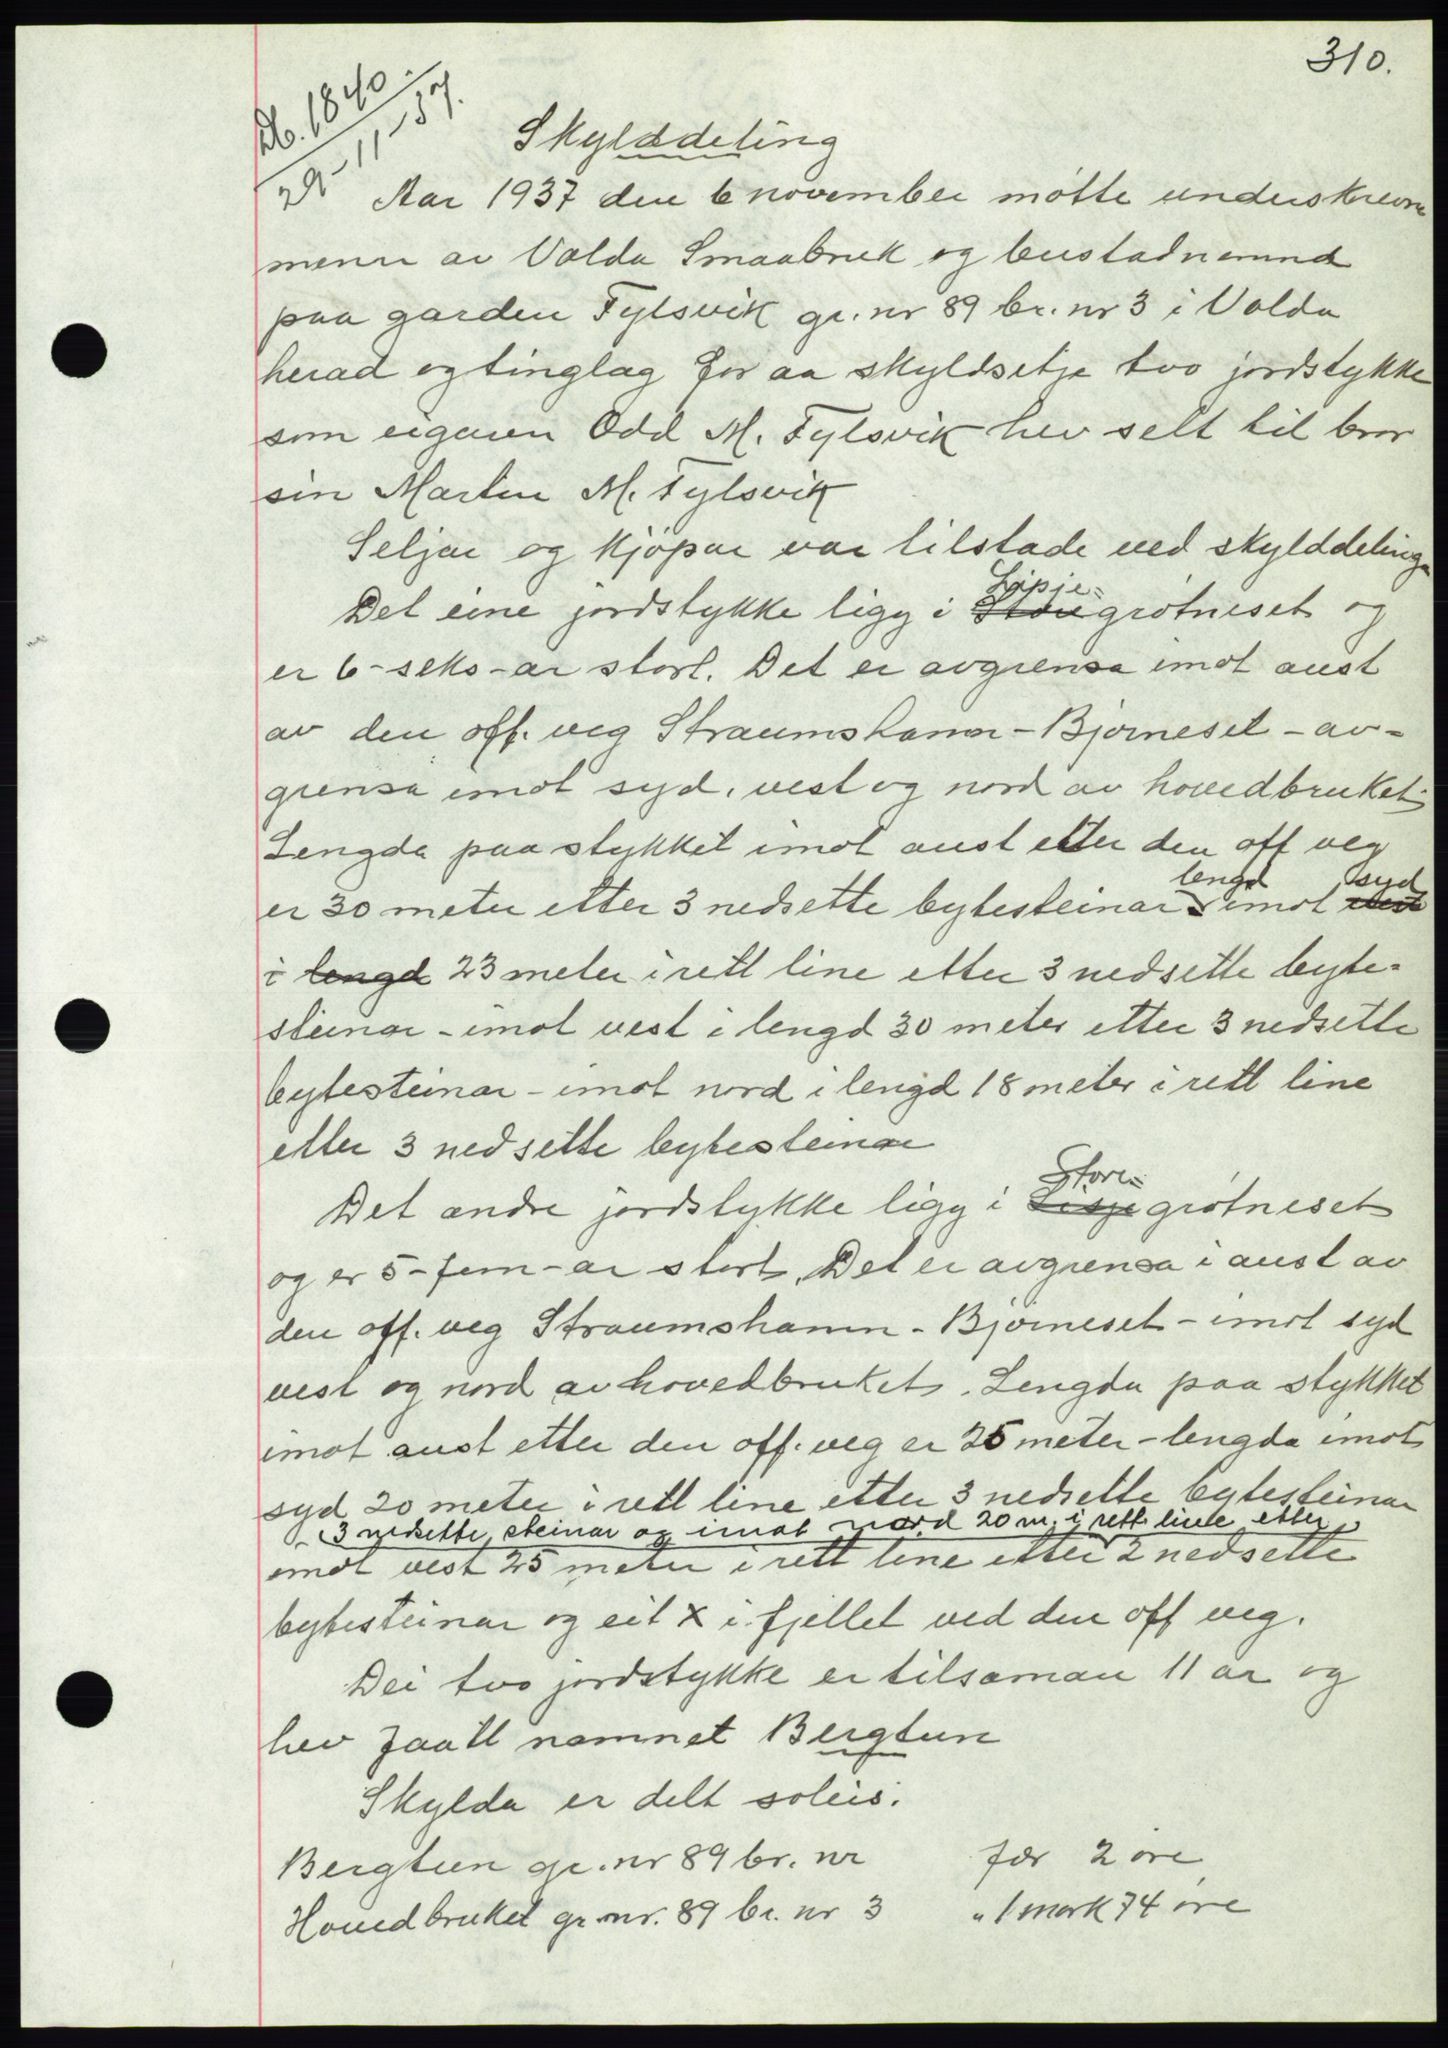 310.
Db. 1840.
29-11-37.
Skylddeling
Aar 1937 den 6 november møtte underskrevne
menn av Volda Smaabruk og bustadnemnd
paa garden Fylsvik gr. nr 89 br. nr 3 i Volda
herad og tinglag for aa skyldsetje tvo jordstykke
som eigaren Odd M. Fylsvik hev selt til bror
sin Martin M. Fylsvik
Seljar og kjöpar var tilstade ved skylddelinga
Lisje-
Det eine jordstykke ligg i Store grótneset og
er 6-seks-ar stort. Det er avgrensa imot aust
av den off. veg Straumshamn - Bjørneset - av-
grensa imot syd, vest og nord av hovedbruket.
Lengda paa stykket imot aust etter den off veg
lengd syd
er 30 meter etter 3 nedsette bytesteinar - imot vest
i lengd 23 meter i rett line etter 3 nedsette byte-
steinar - imot vest i lengd 30 meter etter 3 nedsette
bytesteinar - imot nord i lengd 18 meter i rett line
etter 3 nedsette bytesteinar
Store-
Det andre jordstykke ligg i Lisje grótneset
og er 5-fem-ar stort. Det er avgrensa i aust av
den off. veg Straumshamn - Bjørneset - imot syd
vest og nord av hovedbruket. Lengda paa stykket
imot aust etter den off. veg er 25 meter - lengda imot
syd 20 meter i rett line etter 3 nedsette bytesteinar
3 nedsette steinar og imot nord 20 m. i rett line etter
imot vest 25 meter i rett line etter 2 nedsette
bytesteinar og eit x i fjellet ved den off veg.
Dei tvo jordstykke er tilsaman 11 ar og
hev faatt namnet Bergtun
Skylda er delt soleis:
Bergtun gr. nr 89 br. nr for 2 øre
Hovedbruket gr. nr. 89 br. nr 3 " 1 mark 74 øre